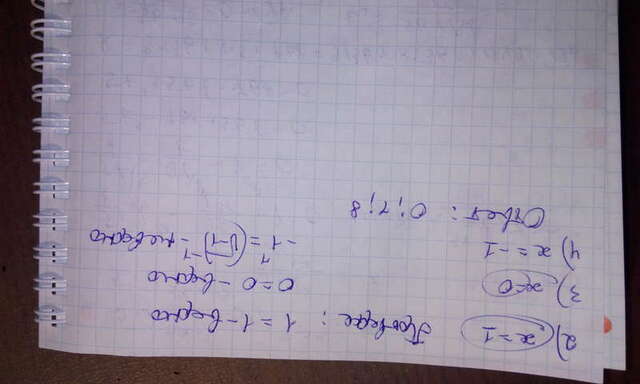 2) x=1 Проверка: 1=1 - верно
3) x=0 0=0 - верно
4) x=-1 -1=(√-1)⁻¹ - неверно
Ответ: 0; 1; 8